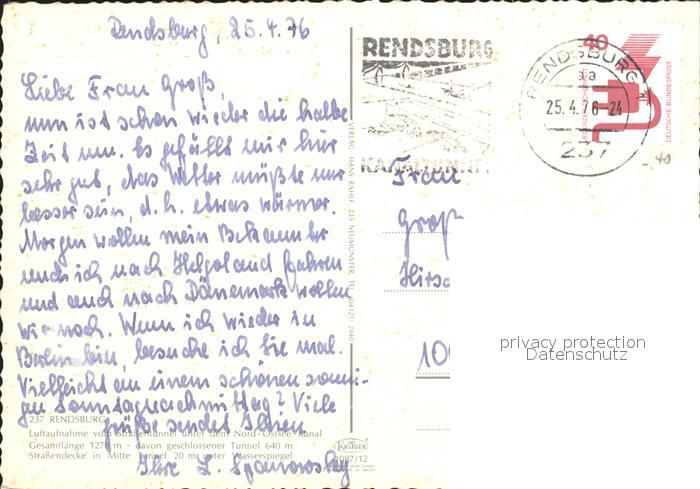 Rendsburg, 25.4.76
Liebe Frau Groß,
nun ist schon wieder die halbe
Zeit um. Es gefällt mir hier
sehr gut, das Wetter müßte nur
besser sein, d.h. etwas wärmer.
Morgen wollen mein Bekannter
und ich nach Helgoland fahren
und auch nach Dänemark wollen
wir noch. Wenn ich wieder in
Berlin bin, besuche ich Sie mal.
Vielleicht an einem schönen sonni-
gen Sonntagnachmittag? Viele
Grüße sendet Ihnen
Ihre L. Spanowsky
237 RENDSBURG
Luftaufnahme vom Straßentunnel unter dem Nord-Ostsee-Kanal
Gesamtlänge 1278 m - davon geschlossener Tunnel 640 m
Straßendecke in Mitte Tunnel 20 m unter Wasserspiegel
VERLAG: HANS KAHLF, 235 NEUMÜNSTER, TEL. (04321) 2440
KRÜGER
1087/12
RENDSBURG
KANALTUNNEL
RENDSBURG
25.4.76-24
237
40
DEUTSCHE BUNDESPOST
-.40
Frau
Groß
Hirsc
100
privacy protection
Datenschutz